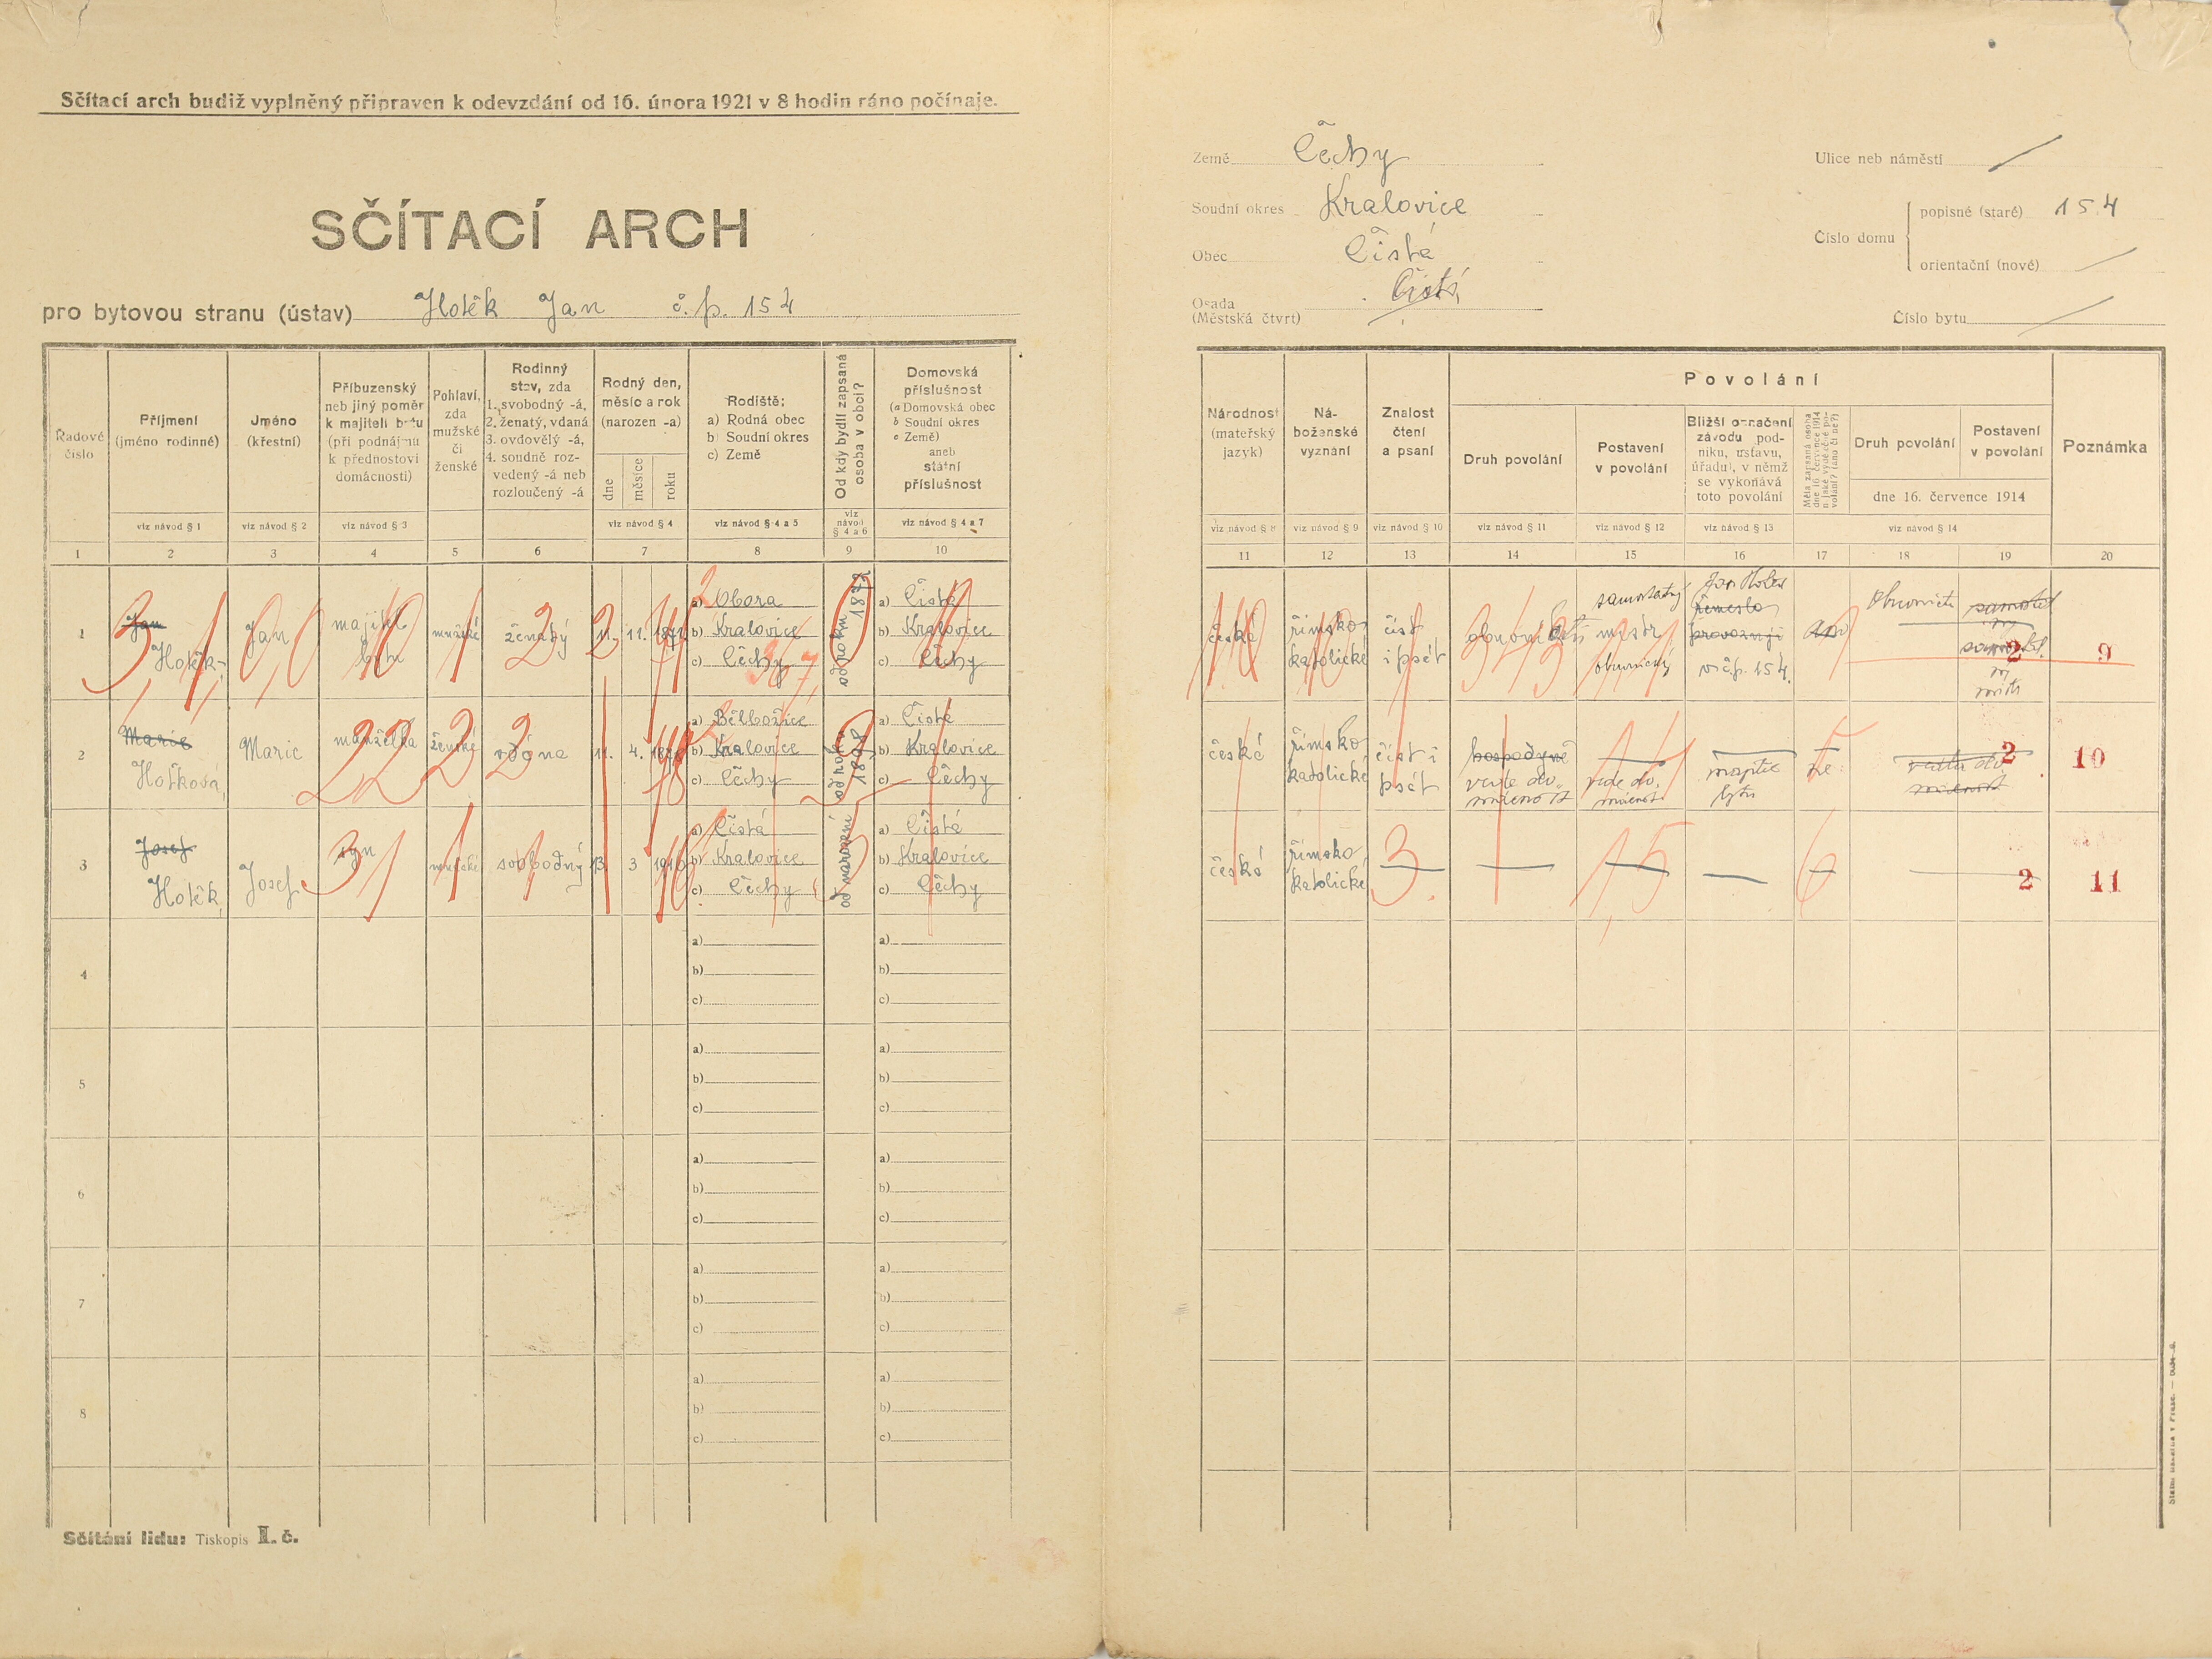 Sčítací arch budiž vyplněný připraven k odevzdání od 16. února 1921 v 8 hodin ráno počínaje.
SČÍTACÍ ARCH
pro bytovou stranu (ústav) Hotěk Jan č. p. 154
Země Čechy
Soudní okres Kralovice
Obec Čistá
Osada
(Městská čtvrť)
Čistá
Ulice neb náměstí
Číslo domu
popisné (staré) 154
orientační (nové)
Číslo bytu
Řadové
číslo
Příjmení
(jméno rodinné)
viz návod § 1
Jméno
(křestní)
viz návod § 2
Příbuzenský
neb jiný poměr
k majiteli bytu
(při podnájmu
k přednostovi
domácnosti)
viz návod § 3
Pohlaví,
zda
mužské
či
ženské
Rodinný
stav, zda
1. svobodný -á,
2. ženatý, vdaná
3. ovdovělý -á,
4. soudně roz-
vedený -á neb
rozloučený -á
Rodný den,
měsíc a rok
(narozen -a)
dne
měsíce
roku
viz návod § 4
Rodiště:
a) Rodná obec
b) Soudní okres
c) Země
viz návod § 4 a 5
Od kdy bydlí zapsaná
osoba v obci?
viz
návod
§ 4 a 6
Domovská
příslušnost
(a Domovská obec
b Soudní okres
c Země)
aneb
státní
příslušnost
viz návod § 4 a 7
1 2 3 4 5 6 7 8 9 10
Národnost
(mateřský
jazyk)
viz návod § 8
Ná-
boženské
vyznání
viz návod § 9
Znalost
čtení
a psaní
viz návod § 10
Povolání
Druh povolání
viz návod § 11
Postavení
v povolání
viz návod § 12
Bližší označení
závodu, pod-
niku, ústavu,
úřadu), v němž
se vykonává
toto povolání
viz návod § 13
Měla zapsaná osoba
dne 16. července 1914
nějaké výdělečné po-
volání? (ano či ne?)
Druh povolání
Postavení
v povolání
dne 16. července 1914
viz návod § 14
Poznámka
11 12 13 14 15 16 17 18 19 20
1
Jan
Hotěk
Jan
majitel
bytu
mužské
ženatý
11. 11. 1871
a) Obora
b) Kralovice
c) Čechy
od roku 1878
a) Čistá
b) Kralovice
c) Čechy
česká
římsko
katolické
číst
i psát
obuvnictví
samostatný
mistr
obuvnický
Jan Hotěk
řemeslo
provozuji
v č.p. 154.
ano
Obuvnictví
2
9
2
Marie
Hotková
Marie
manželka
ženské
vdána
11. 4.
a) Bělbožice
b) Kralovice
c) Čechy
od roku 1898
a) Čistá
b) Kralovice
c) Čechy
české
římsko
katolické
číst i
psát
hospodyně
vede do-
mácnost
vede do-
mácnost
majitel
bytu
ne
vedla do
mácnost
2
10
3
Josef
Hotěk
Josef
syn
mužské
svobodný
13. 3 1910
a) Čistá
b) Kralovice
c) Čechy
od narození
a) Čistá
b) Kralovice
c) Čechy
česká
římsko
katolické
2
11
4
a)
b)
c)
a)
b)
c)
5
a)
b)
c)
a)
b)
c)
6
a)
b)
c)
a)
b)
c)
7
a)
b)
c)
a)
b)
c)
8
a)
b)
c)
a)
b)
c)
Sčítání lidu: Tiskopis I. č.